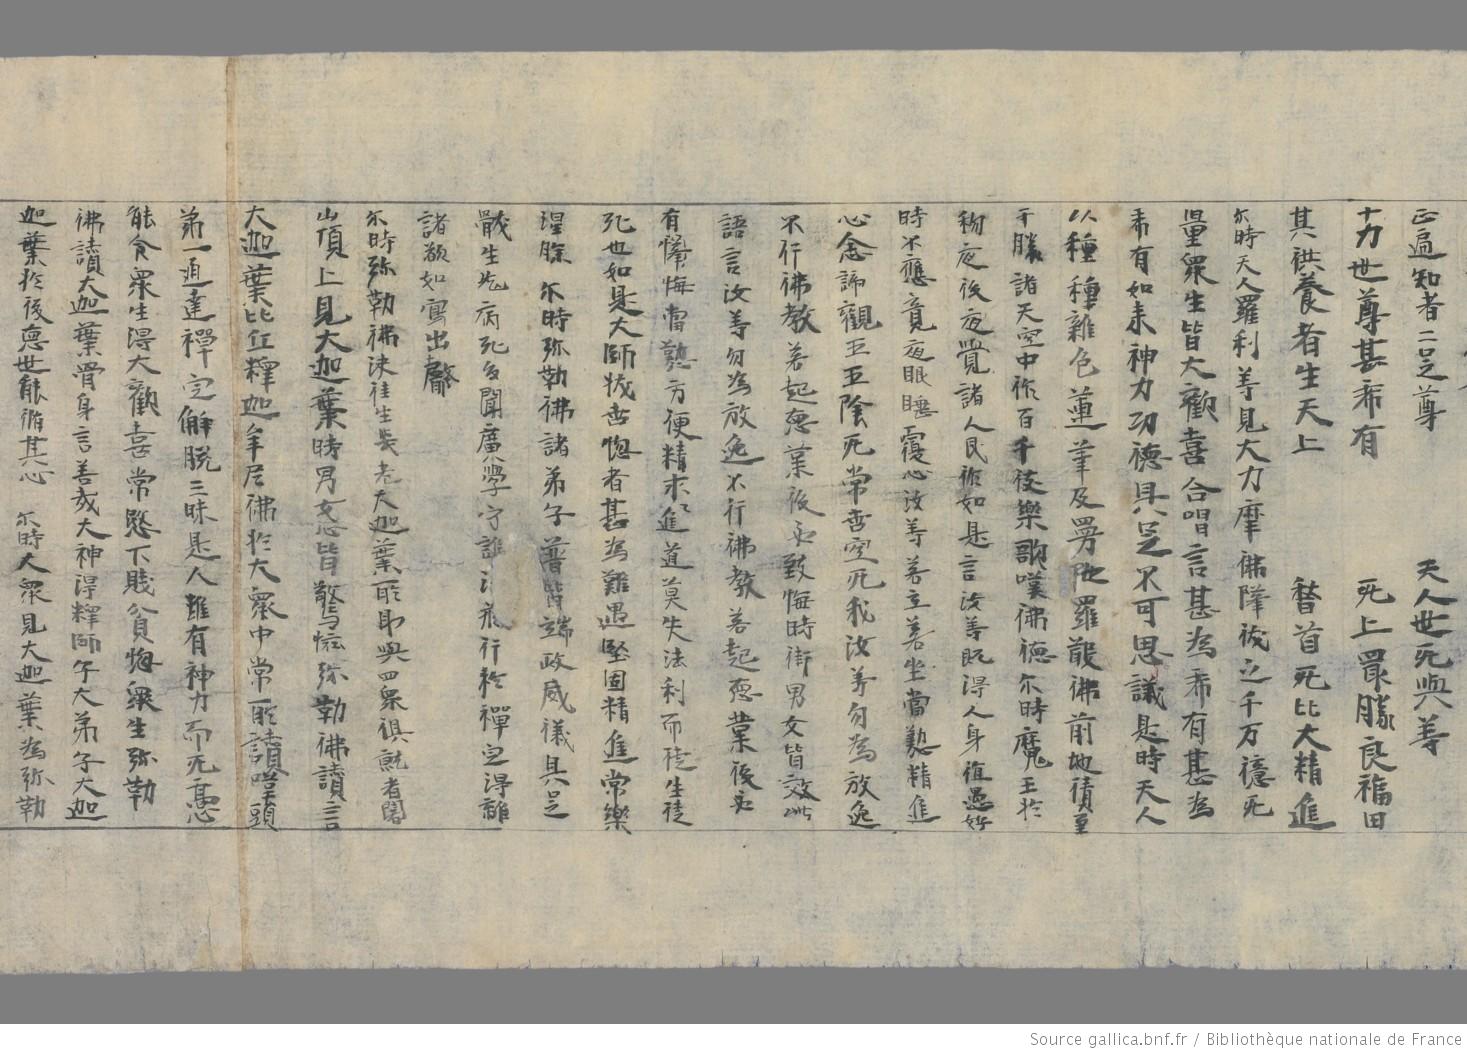 正遍知者二足尊 天人世无與等
十力世尊甚希有 无上㝡勝良福田
其供養者生天上 稽首无比大精進
尒時天人羅刹等見大力摩佛降伏之千万億无
量衆生皆大歡喜合唱言甚為希有甚為
希有如来神力功德具足不可思議是時天人
以種種雜色蓮華及曼陁羅散佛前地積至
于膝諸天空中作百千伎樂歌嘆佛德尒時魔王於
初夜後夜覺諸人民作如是言汝等既得人身值遇好
時不應竟夜眠睡覆心汝等若立若坐當懃精進
心念諦觀五五陰无常苦空无我汝等勿為放逸
不行佛教若起惡業後必致悔時街男女皆效此
語言汝等勿為放逸不行佛教若起惡業後必
有悔當懃方便精求進道莫失法利而徒生徒
死也如是大師拔苦惱者甚為難遇堅固精進常樂
涅槃 尒時弥勒佛諸弟子普皆端政威儀具足
猒生老病死多聞廣學守護法藏行於禪定得離
諸欲如鳥出㲉
尒時弥勒佛決往先大迦葉所即與四衆俱就耆闍
山頂上見大迦葉時男女悉皆驚恠弥勒佛讃言
大迦葉比丘釋迦牟尼佛於大衆中常所讃嘆頭
第一通達禪定解脱三昧是人雖有神力而无髙心
能令衆生得大歡喜常愍下賤貧惱衆生弥勒
佛讃大迦葉骨身言善哉大神得釋師子大弟子大迦
葉於後惡世能脩其心 尒時大衆見大迦葉為弥勒